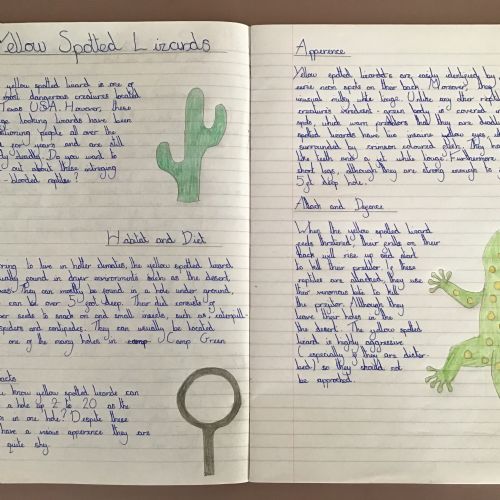 Yellow Spotted Lizards
yellow spotted lizard is one of
most dangerous creatures located
Texas USA. However, these
looking lizards have been
people all over the
for years and are still
deadly. Do you want to
out about these intriguing
blooded reptiles?
Habitat and Diet
to live in hotter climates, the yellow spotted lizard
found in dryer environments such as the desert,
They can mostly be found in a hole under ground,
can be over 5 foot deep. Their diet consists of
seeds to snack on and small insects, such as, caterpill-
spiders and centipedes. They can usually be located
one of the many holes in camp Camp Green
know yellow spotted lizards can
a hole up 2 to 20 as the
in one hole? Despite these
have a vicious apperence they are
quite shy.
Apperence
Yellow spotted lizards are easily identified by
neon spots on their back. Moreover, they
unusual milky white tongue. Unlike any other
creature's green body is covered
spots which warn predators that they are
spotted lizards have two insane yellow eyes
surrounded by crimson coloured flesh. They
like teeth and a white tongue. Furthermore
short legs, although they are strong enough to
5ft deep hole.
Attack and Defence
When the yellow spotted lizard
feels threatened, their frills on their
back will rise up and start
to tell their preditor If these
reptiles are attacked, they use
their venomous bite to kill
the preyitor. Although they
leave their holes in the
the desert. The yellow spotted
lizard is highly aggressive
(especially if they are distur-
bed) so they should not
be approached.